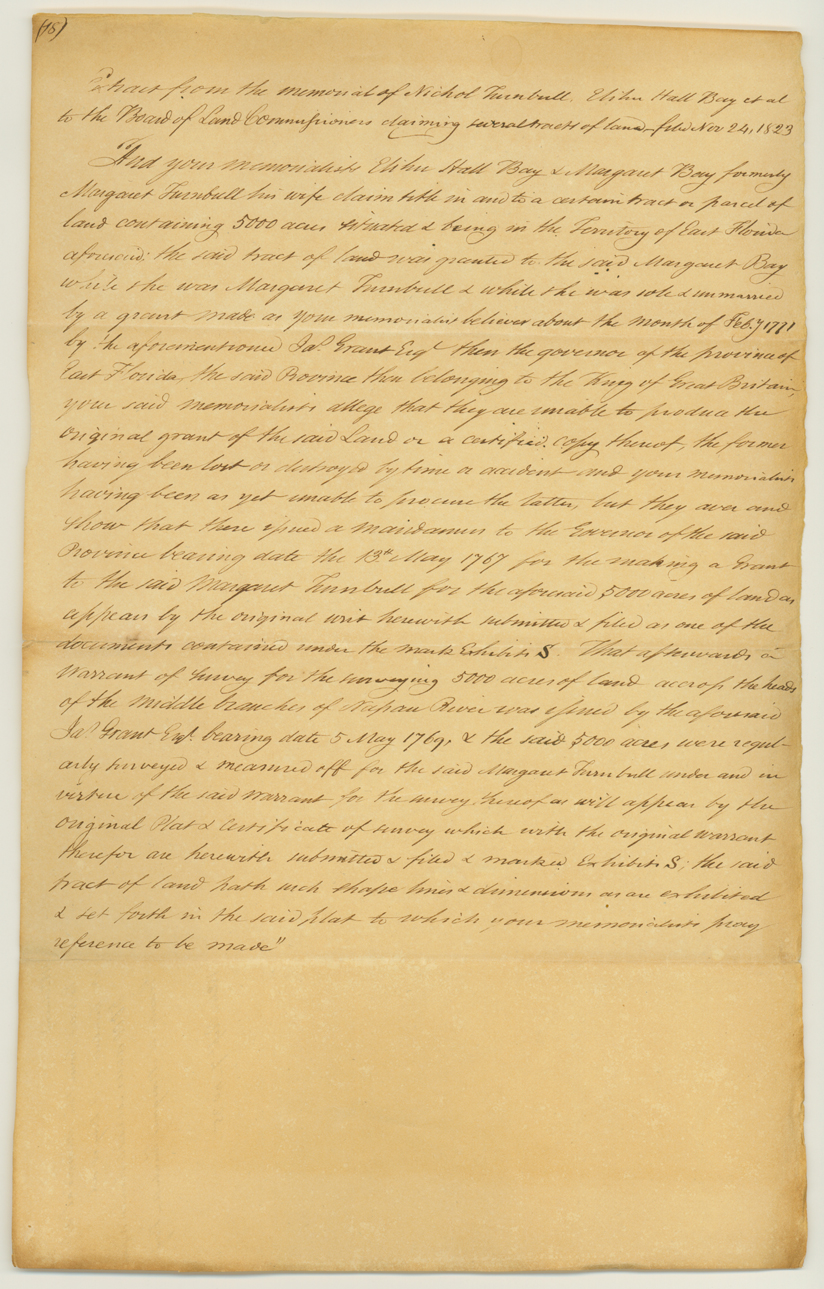 (18)
Extract from the memorial of Nichol Turnbull, Elihu Hall Bay et al
to the Board of Land Commissioners claiming several tracts of land filed Nov 24, 1823
"And your memorialists Elihu Hall Bay & Margaret Bay formerly
Margaret Turnbull his wife claim title in and to a certain tract or parcel of
land containing 5000 acres situated & being in the Territory of East Florida
aforesaid; the said tract of land was granted to the said Margaret Bay
while she was Margaret Turnbull & while she was sole & unmarried
by a grant made as your memorialists believe about the month of Feby 1771
by the aforementioned Jas. Grant Esqr then the governor of the province of
East Florida, the said Province then belonging to the King of Great Britain,
your said memorialists allege that they are unable to produce the
original grant of the said Land or a certified copy thereof, the former
having been lost or destroyed by time or accident and your memorialists
having been as yet unable to procure the latter, but they aver and
show that there issued a mandamus to the Governor of the said
Province bearing date the 13th May 1767 for the making a Grant
to the said Margaret Turnbull for the aforesaid 5000 acres of land as
appears by the original writ herewith submitted & filed as one of the
documents contained under the mark Exhibits S. That afterwards a
Warrant of Survey for the surveying 5000 acres of land accross the heads
of the middle branches of Nassau River was issued by the aforesaid
Jas. Grant Esqr. bearing date 5 May 1769, & the said 5000 acres were regul-
arly surveyed & measured off for the said Margaret Turnbull under and in
virtue of the said Warrant for the survey thereof as will appear by the
original Plat & Certificate of survey which with the original warrant
therefor are herewith submitted & filed & marked Exhibits S; the said
tract of land hath such shape lines & dimensions as are exhibited
& set forth in the said plat to which your memorialists pray
reference to be made"